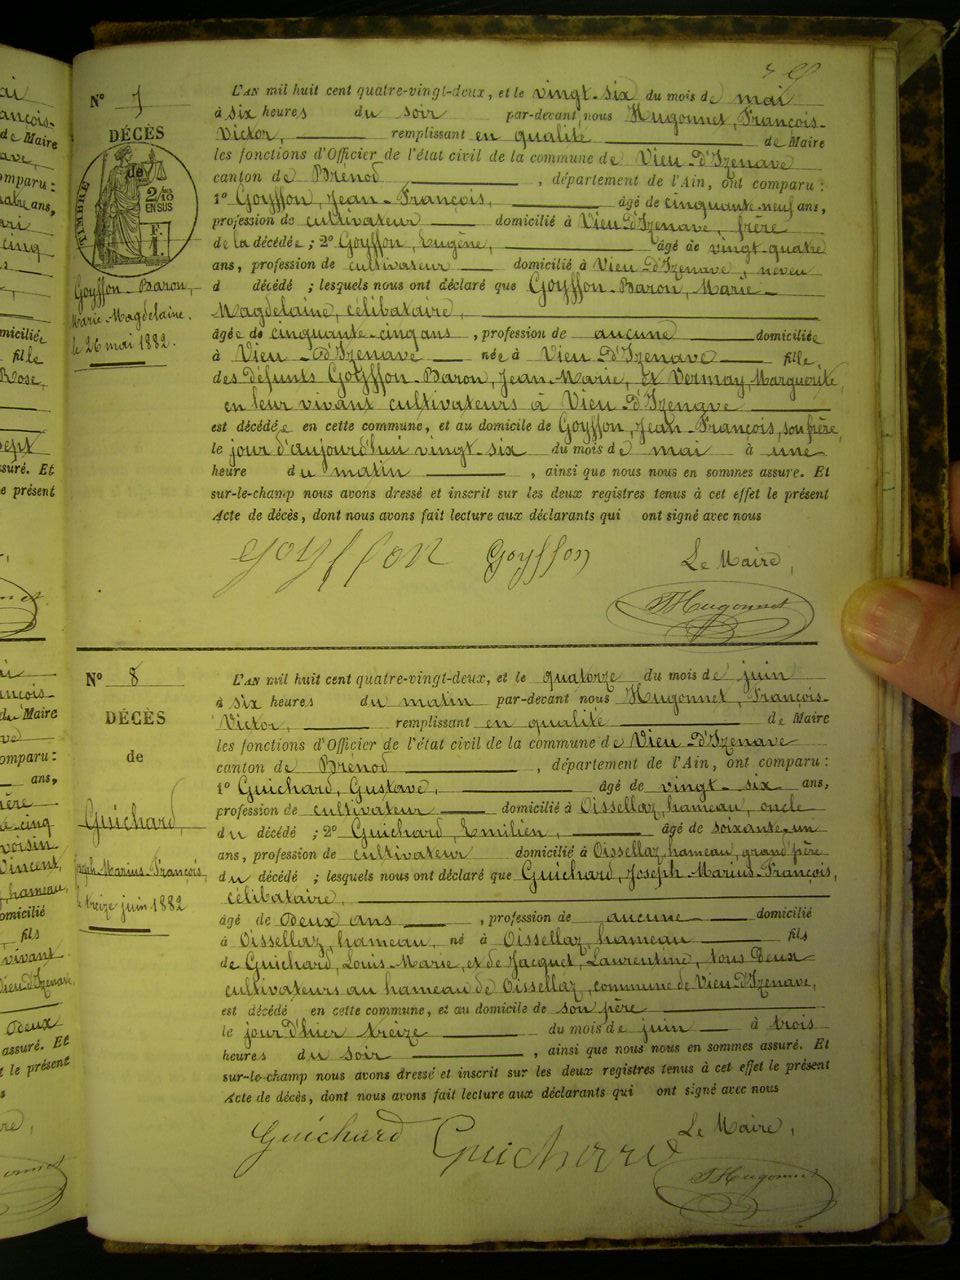 N° 7
DÉCÈS
de
TIMBRE
2/10
EN SUS
F.
1
Goyffon-Baron,
Marie-Magdelaine.
le 26 mai 1882.
L'AN mil huit cent quatre-vingt-deux, et le vingt-six du mois de mai
à six heures du soir par-devant nous Hugonnet, François-
Victor, remplissant en qualité de Maire
les fonctions d'Officier de l'état civil de la commune de Vieu-d'Izenave
canton de Brénod, département de l'Ain, ont comparu :
1° Goyffon, Jean-François, âgé de cinquante-neuf ans,
profession de cultivateur domicilié à Vieu-d'Izenave, frère
de la décédée ; 2° Goyffon, Eugène, âgé de vingt-quatre
ans, profession de cultivateur domicilié à Vieu-d'Izenave, neveu
d décédé ; lesquels nous ont déclaré que Goyffon-Baron, Marie-
Magdelaine, célibataire,
âgée de cinquante-cinq ans, profession de aucune domiciliée
à Vieu-d'Izenave née à Vieu-d'Izenave fille
des défunts Goyffon-Baron, Jean-Marie, et Vermay, Marguerite,
en leur vivant cultivateurs à Vieu-d'Izenave
est décédée en cette commune, et au domicile de Goyffon, Jean-François, son frère,
le jour d'aujourd'hui vingt-six du mois de mai à une
heure du matin, ainsi que nous nous en sommes assuré. Et
sur-le-champ nous avons dressé et inscrit sur les deux registres tenus à cet effet le présent
Acte de décès, dont nous avons fait lecture aux déclarants qui ont signé avec nous
goyffon Goyffon Le Maire,
Hugonnet
N° 8
DÉCÈS
de
Guichard,
Joseph-Marius-François,
le treize juin 1882
L'AN mil huit cent quatre-vingt-deux, et le quatorze du mois de juin
à six heures du matin par-devant nous Hugonnet, François-
Victor, remplissant en qualité de Maire
les fonctions d'Officier de l'état civil de la commune de Vieu-d'Izenave
canton de Brénod, département de l'Ain, ont comparu :
1° Guichard, Gustave, âgé de vingt-six ans,
profession de cultivateur domicilié à Oissellaz, hameau, oncle
du décédé ; 2° Guichard, Emilien, âgé de soixante-un
ans, profession de cultivateur domicilié à Oissellaz, hameau, grand père
du décédé ; lesquels nous ont déclaré que Guichard, Joseph-Marius-François,
célibataire,
âgé de deux ans, profession de aucune domicilié
à Oissellaz, hameau, né à Oissellaz, hameau fils
de Guichard, Louis-Marie, et de Jacquet, Laurentine, tous deux
cultivateurs au hameau de Oissellaz, commune de Vieu-d'Izenave,
est décédé en cette commune, et au domicile de son père
le jour d'hier treize du mois de juin à trois
heures du soir, ainsi que nous nous en sommes assuré. Et
sur-le-champ nous avons dressé et inscrit sur les deux registres tenus à cet effet le présent
Acte de décès, dont nous avons fait lecture aux déclarants qui ont signé avec nous
Guichard Guichard Le Maire,
Hugonnet